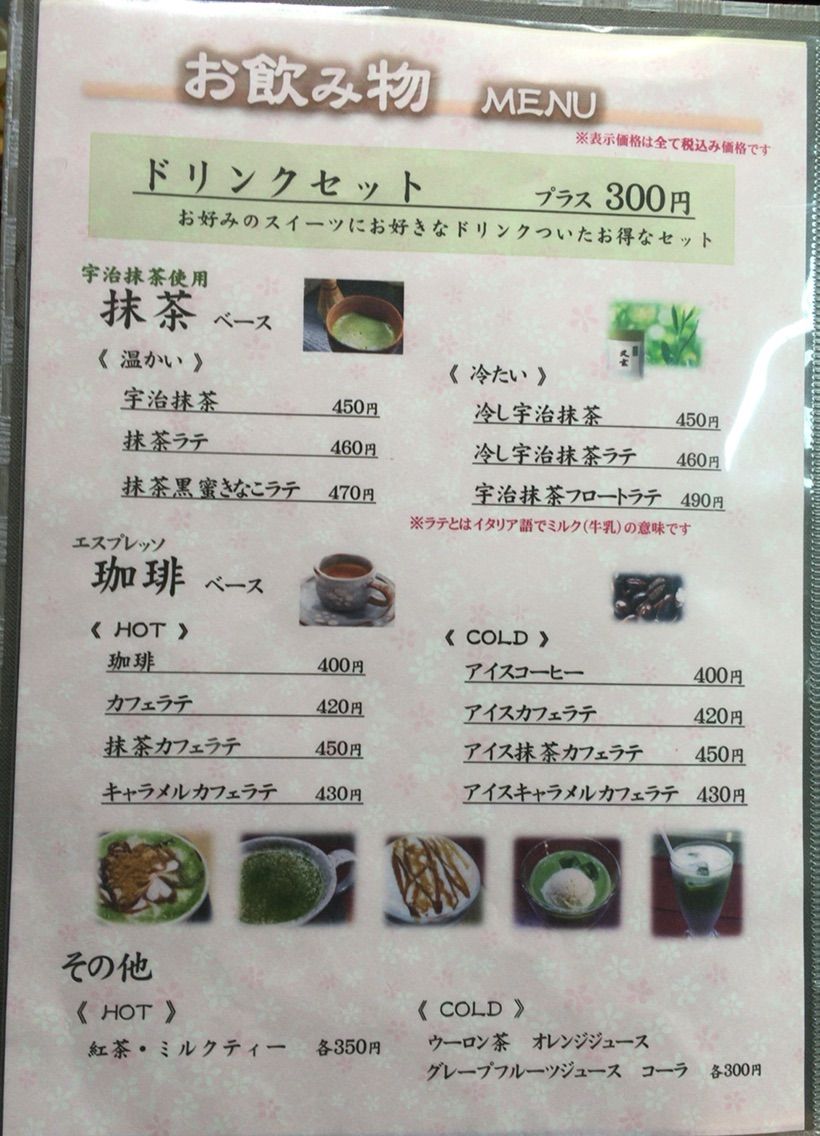 お飲み物 MENU
※表示価格は全て税込み価格です
ドリンクセット プラス 300円
お好みのスイーツにお好きなドリンクついたお得なセット
宇治抹茶使用
抹茶 ベース
《 温かい 》
宇治抹茶 450円
抹茶ラテ 460円
抹茶黒蜜きなこラテ 470円
《 冷たい 》
冷し宇治抹茶 450円
冷し宇治抹茶ラテ 460円
宇治抹茶フロートラテ 490円
※ラテとはイタリア語でミルク(牛乳)の意味です
エスプレッソ
珈琲 ベース
《 HOT 》
珈琲 400円
カフェラテ 420円
抹茶カフェラテ 450円
キャラメルカフェラテ 430円
《 COLD 》
アイスコーヒー 400円
アイスカフェラテ 420円
アイス抹茶カフェラテ 450円
アイスキャラメルカフェラテ 430円
その他
《 HOT 》
紅茶・ミルクティー 各350円
《 COLD 》
ウーロン茶 オレンジジュース
グレープフルーツジュース コーラ 各300円